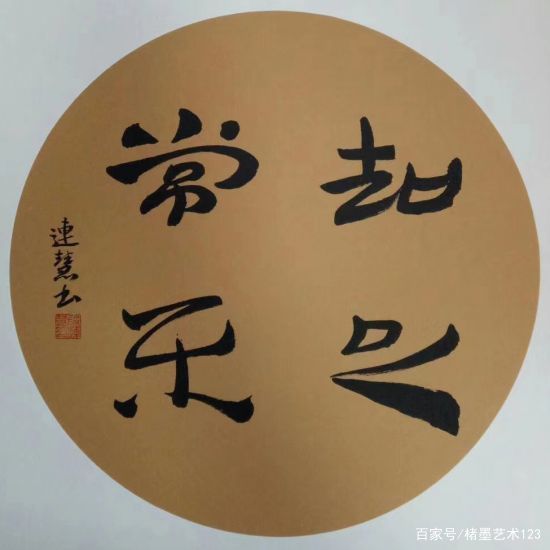 知足
常乐
連慧书
百家号/楮墨艺术123